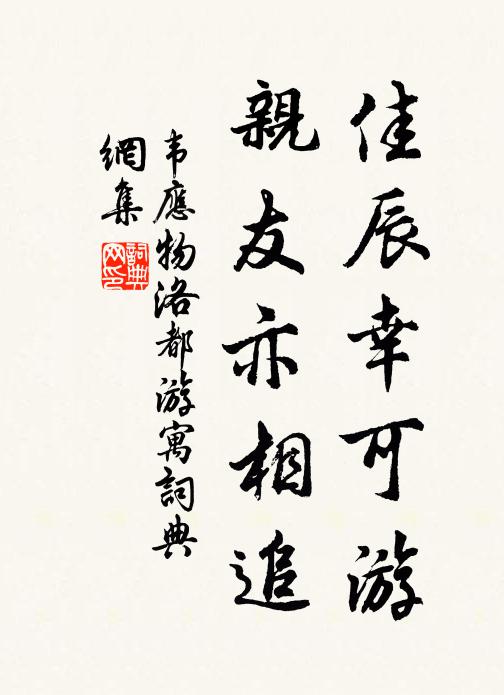 佳辰幸可游
親友亦相追
韦應物洛都游寓詞典
網集
詞典
网印